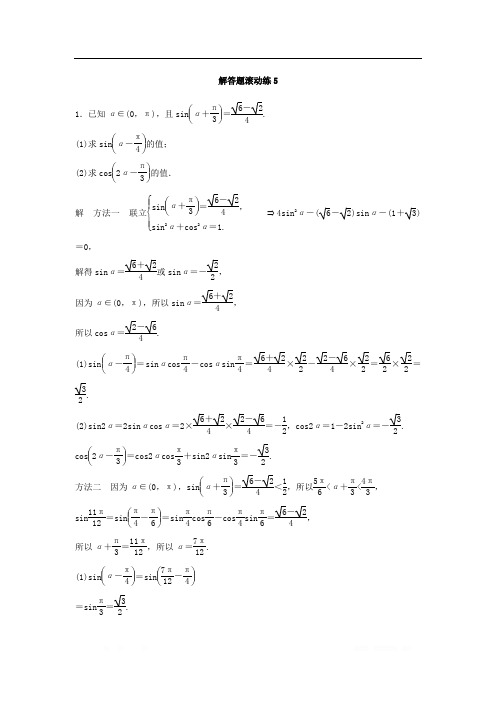 解答题滚动练5
1．已知 α∈(0，π)，且sin(α+π/3)=(√6-√2)/4.
(1)求sin(α-π/4)的值；
(2)求cos(2α-π/3)的值．
解　方法一　联立{sin(α+π/3)=(√6-√2)/4， sin²α+cos²α=1. ⇒4sin²α-(√6-√2)sinα-(1+√3)
=0，
解得sinα=(√6+√2)/4或sinα=-√2/2，
因为α∈(0，π)，所以sinα=(√6+√2)/4，
所以cosα=(√2-√6)/4.
(1)sin(α-π/4)=sinαcosπ/4-cosαsinπ/4=(√6+√2)/4×√2/2-(√2-√6)/4×√2/2=√6/2×√2/2=
√3/2.
(2)sin2α=2sinαcosα=2×(√6+√2)/4×(√2-√6)/4=-1/2，cos2α=1-2sin²α=-√3/2.
cos(2α-π/3)=cos2αcosπ/3+sin2αsinπ/3=-√3/2.
方法二　因为α∈(0，π)，sin(α+π/3)=(√6-√2)/4<1/2，所以5π/6<α+π/3<4π/3，
sin11π/12=sin(π/4-π/6)=sinπ/4cosπ/6-cosπ/4sinπ/6=(√6-√2)/4，
所以α+π/3=11π/12，所以α=7π/12.
(1)sin(α-π/4)=sin(7π/12-π/4)
=sinπ/3=√3/2.